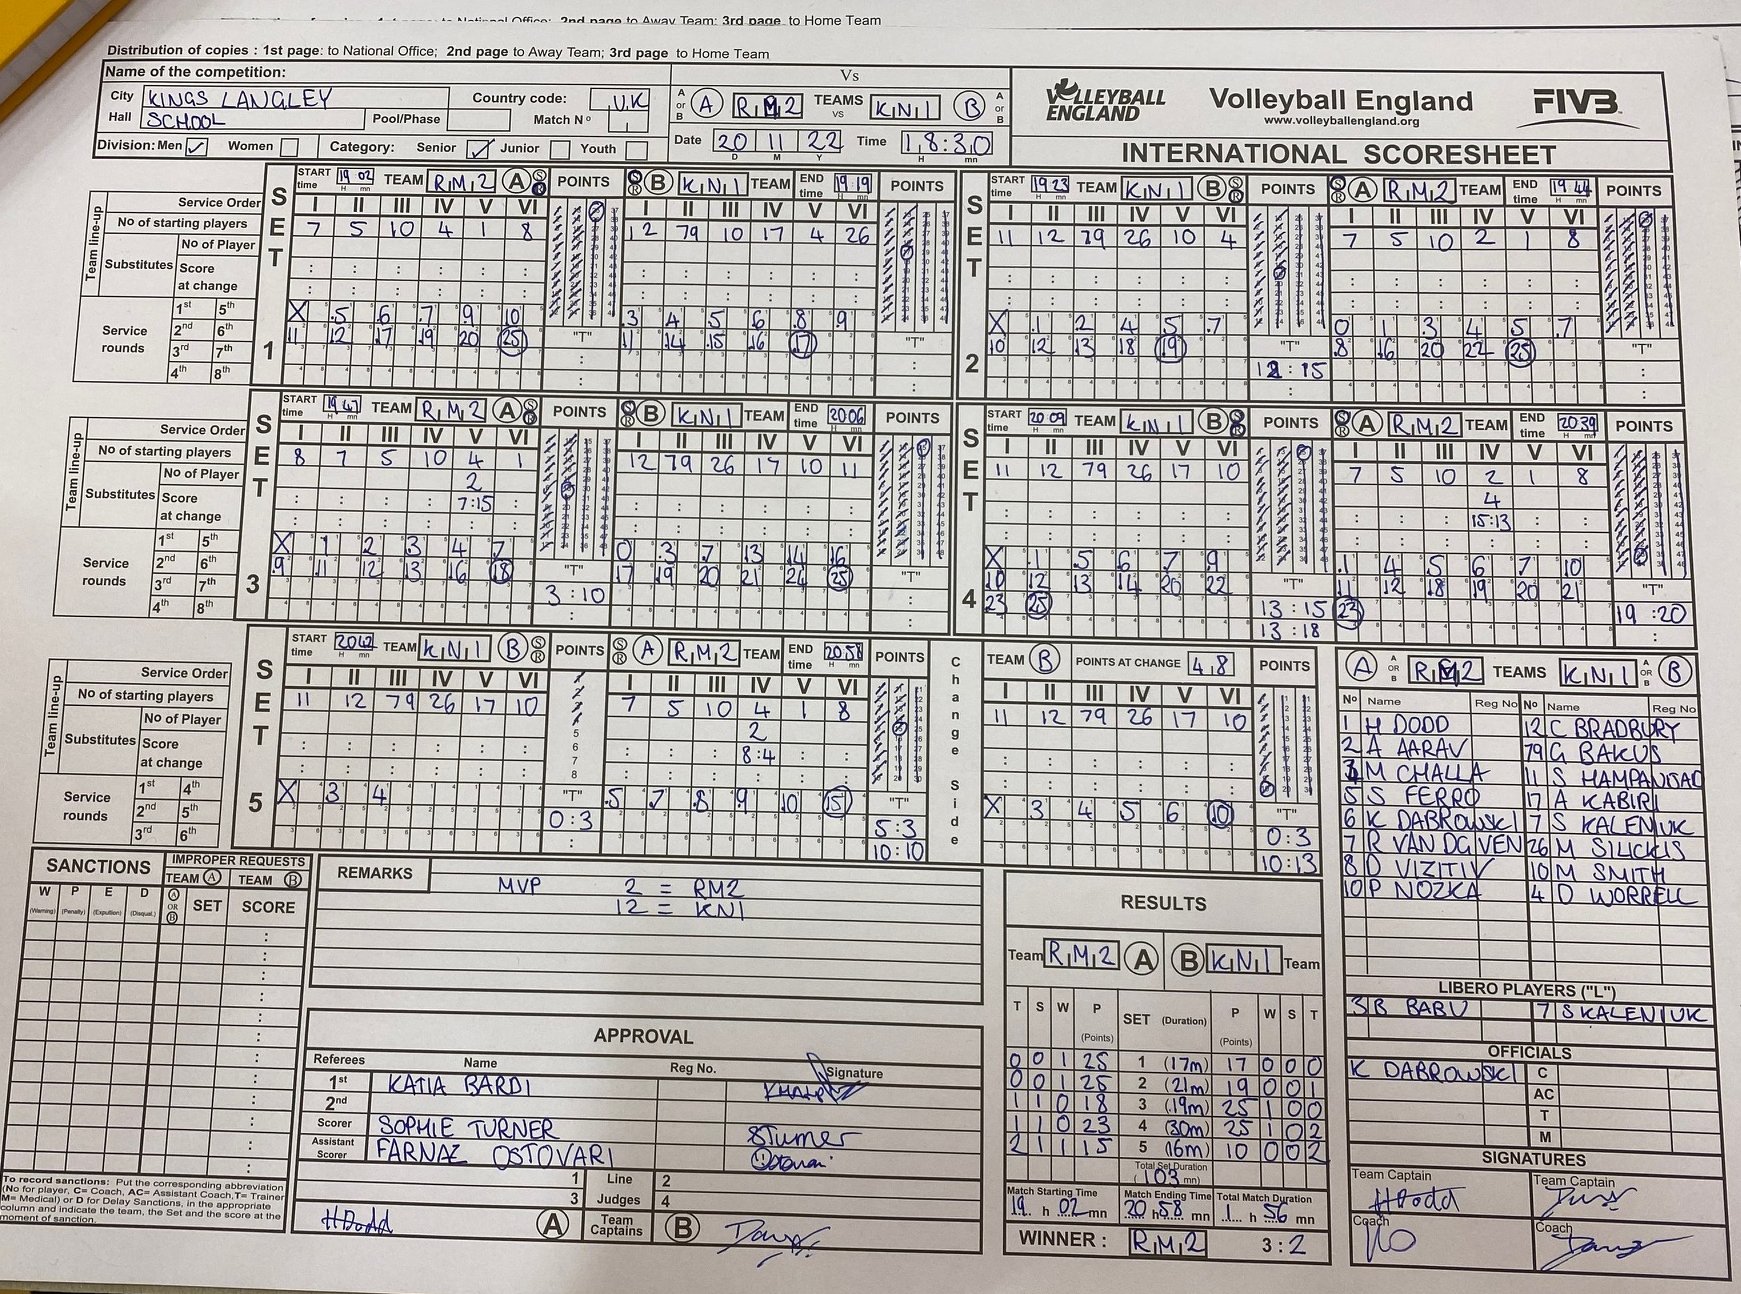 to Away Team; 3rd page to Home Team
Distribution of copies : 1st page: to National Office; 2nd page to Away Team; 3rd page to Home Team
Name of the competition:
City KINGS LANGLEY Country code: UK
Hall SCHOOL Pool/Phase Match Nº
Division: Men ✓ Women Category: Senior ✓ Junior Youth
Vs
A or B A RM2 TEAMS vs KN1 B A or B
Date 20 11 22 Time 18:30
D M Y H mn
VOLLEYBALL ENGLAND
Volleyball England
www.volleyballengland.org
FIVB
INTERNATIONAL SCORESHEET
SET 1
START time 19 02 TEAM RM2 A POINTS B KN1 TEAM END time 19 19 POINTS
Team line-up
Service Order I II III IV V VI I II III IV V VI
No of starting players 7 5 10 4 1 8 12 79 10 17 4 26
Substitutes No of Player
Score at change
Service rounds
1st 5th X 5 6 7 9 10 3 4 5 6 8 9
2nd 6th 11 12 17 19 20 25 11 14 15 16 17
3rd 7th
4th 8th
"T" "T"
SET 2
START time 19 23 TEAM KN1 B POINTS A RM2 TEAM END time 19 44 POINTS
I II III IV V VI I II III IV V VI
11 12 79 26 10 4 7 5 10 2 1 8
X 1 2 4 5 7 0 1 3 4 5 7
10 12 13 18 19 8 16 20 22 25
"T" "T"
12 : 15
SET 3
START time 19 47 TEAM RM2 A POINTS B KN1 TEAM END time 20 06 POINTS
Team line-up
Service Order I II III IV V VI I II III IV V VI
No of starting players 8 7 5 10 4 1 12 79 26 17 10 11
Substitutes No of Player 2
Score at change 7:15
Service rounds
1st 5th X 1 2 3 4 7 0 3 7 13 14 16
2nd 6th 9 11 12 13 16 18 17 19 20 21 24 25
3rd 7th
4th 8th
"T" "T"
3 : 10
SET 4
START time 20 09 TEAM KN1 B POINTS A RM2 TEAM END time 20 39 POINTS
I II III IV V VI I II III IV V VI
11 12 79 26 17 10 7 5 10 2 1 8
4
15:13
X 1 5 6 7 9 1 4 5 6 7 10
10 12 13 14 20 22 11 12 18 19 20 21
23 25 23
"T" "T"
13 : 15 19 : 20
13 : 18
SET 5
START time 20 42 TEAM KN1 B POINTS A RM2 TEAM END time 20 58 POINTS
Team line-up
Service Order I II III IV V VI I II III IV V VI
No of starting players 11 12 79 26 17 10 7 5 10 4 1 8
Substitutes No of Player 2
Score at change 8:4
Service rounds
1st 4th X 3 4 5 7 8 9 10 15
2nd 5th
3rd 6th
"T" "T"
0 : 3 5 : 3
10 : 10
Change Side
TEAM B POINTS AT CHANGE 4,8 POINTS
I II III IV V VI
11 12 79 26 17 10
X 3 4 5 6 10
"T"
0 : 3
10 : 13
A A OR B RM2 TEAMS KN1 A OR B B
Nº Name Reg No Nº Name Reg No
1 H DODD 12 C BRADBURY
2 A AARAV 79 G BAKUS
M CHALLA 11 S
5 S FERRO 17 A KABIRI
6 K DABROWSKI 7 S KALENIUK
7 R VAN 26 M SILICKIS
8 D VIZITIV 10 M SMITH
10 P NOZKA 4 D WORRELL
LIBERO PLAYERS ("L")
3 B BABU 7 S KALENIUK
OFFICIALS
K DABROWSKI C
AC
T
M
SIGNATURES
Team Captain Team Captain
HDodd
Coach Coach
SANCTIONS
IMPROPER REQUESTS
TEAM A TEAM B
W P E D A OR B SET SCORE
(Warning) (Penalty) (Expulsion) (Disqual.)
To record sanctions: Put the corresponding abbreviation
(No for player, C= Coach, AC= Assistant Coach, T= Trainer
M= Medical) or D for Delay Sanctions, in the appropriate
column and indicate the team, the Set and the score at the
moment of sanction.
REMARKS
MVP 2 = RM2
12 = KN1
APPROVAL
Referees Name Reg No. Signature
1st KATIA BARDI
2nd
Scorer SOPHIE TURNER STurner
Assistant Scorer FARNAZ OSTOVARI
1 Line 2
3 Judges 4
HDodd A Team Captains B
RESULTS
Team RM2 A B KN1 Team
T S W P (Points) SET (Duration) P (Points) W S T
0 0 1 25 1 (17m) 17 0 0 0
0 0 1 25 2 (21m) 19 0 0 1
1 1 0 18 3 (19m) 25 1 0 0
1 1 0 23 4 (30m) 25 1 0 2
2 1 1 15 5 (16m) 10 0 0 2
Total Set Duration
(103 mn)
Match Starting Time Match Ending Time Total Match Duration
19 h 02 mn 20 h 58 mn 1 h 56 mn
WINNER : RM2 3 : 2